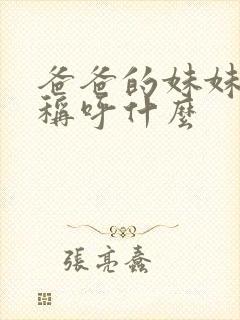 爸爸的妹妹
稱呼什麼
張亮蠢